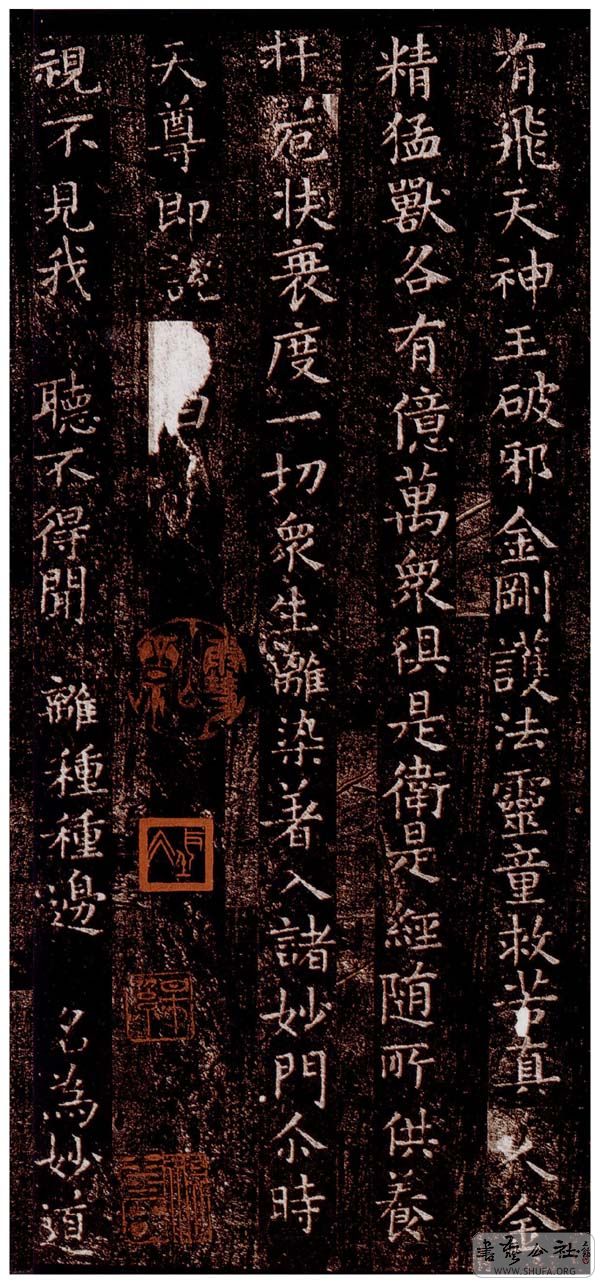 有飛天神王破邪金剛護法靈童救苦真人金
精猛獸各有億萬衆俱是衛是經随所供養
扞厄扶衰度一切衆生離染著入諸妙門尒時
天尊即說
視不見我 聽不得聞 離種種邊 名為妙道
書艺公社
WWW.SHUFA.ORG